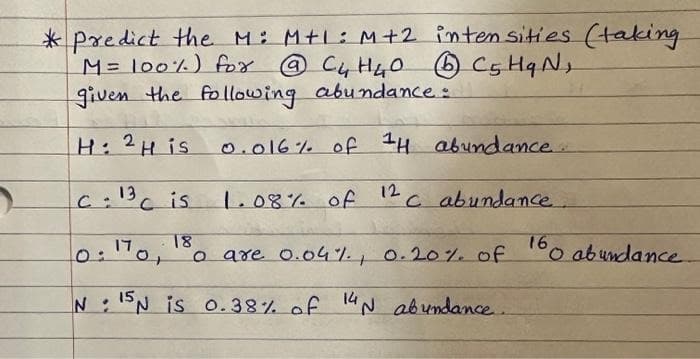 * Predict the M: M+1: M+2 intensities (taking
M= 100%) for ⓐ C₄H₄O ⓑ C₅H₉N,
given the following abundance:
H: ²H is 0.016% of ¹H abundance.
C: ¹³C is 1.08% of ¹²C abundance.
O: ¹⁷O, ¹⁸O are 0.04%, 0.20% of ¹⁶O abundance.
N: ¹⁵N is 0.38% of ¹⁴N abundance.